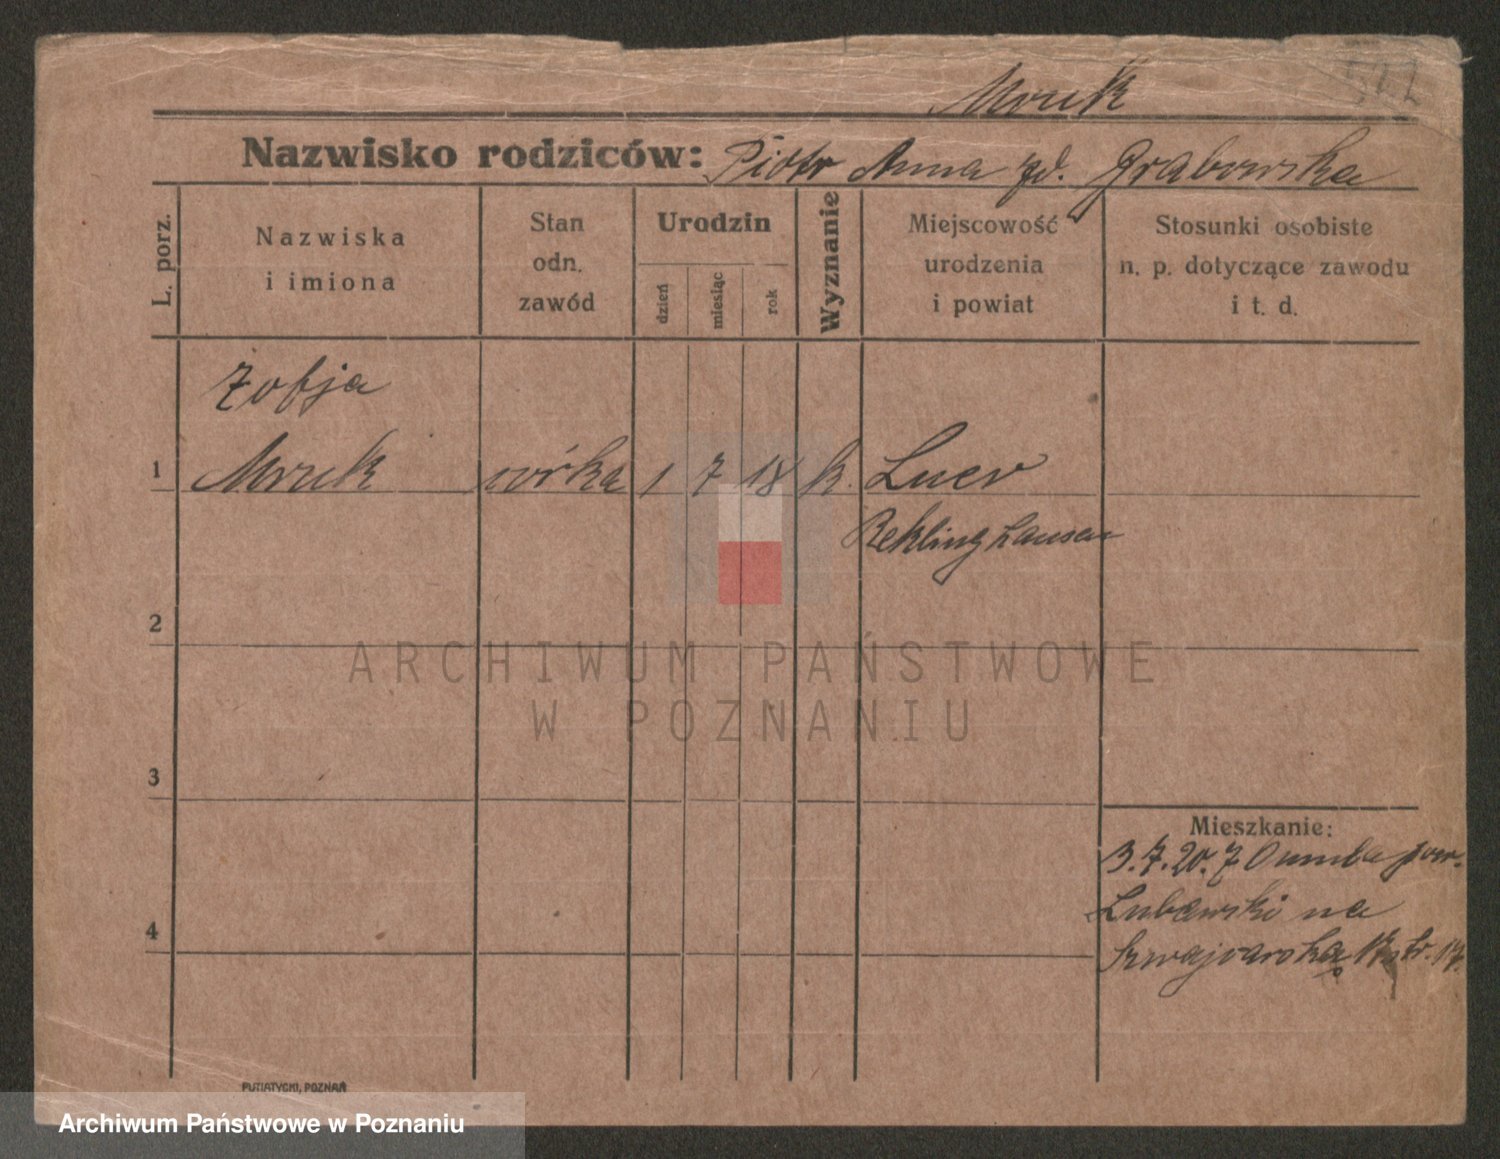 Mruk
Nazwisko rodziców: Piotr Anna zd. Grabowska
L. porz.
Nazwiska
i imiona
Stan
odn.
zawód
Urodzin
dzień
miesiąc
rok
Wyznanie
Miejscowość
urodzenia
i powiat
Stosunki osobiste
n. p. dotyczące zawodu
i t. d.
Zofja
1 Mruk córka 1 7 18 k. Luer
Reklinghausen
2
ARCHIWUM PAŃSTWOWE
W POZNANIU
3
Mieszkanie:
3.7.20. Z pow.
4 Lubawski na
Szwajcarska str.
PUTIATYCKI, POZNAŃ
Archiwum Państwowe w Poznaniu